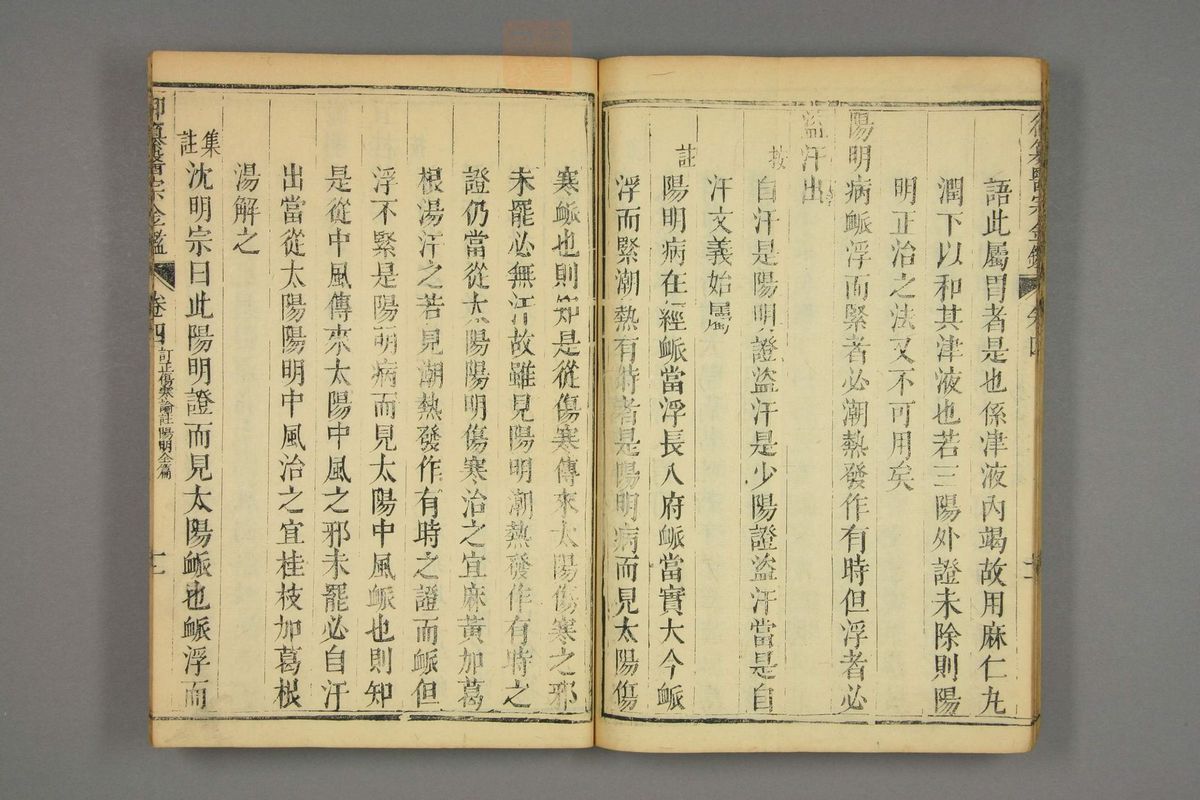 語此屬胃者是也係津液內竭故用麻仁丸
潤下以和其津液也若三陽外證未除則陽
明正治之法又不可用矣
陽明病脈浮而緊者必潮熱發作有時但浮者必
盜汗出
按
自汗是陽明證盜汗是少陽證盜汗當是自
汗文義始屬
註
陽明病在經脈當浮長入府脈當實大今脈
浮而緊潮熱有時者是陽明病而見太陽傷
寒脈也則知是從傷寒傳來太陽傷寒之邪
未罷必無汗故雖見陽明潮熱發作有時之
證仍當從太陽陽明傷寒治之宜麻黃加葛
根湯汗之若見潮熱發作有時之證而脈但
浮不緊是陽明病而見太陽中風脈也則知
是從中風傳來太陽中風之邪未罷必自汗
出當從太陽陽明中風治之宜桂枝加葛根
湯解之
集註
沈明宗曰此陽明證而見太陽脈也脈浮而
御纂醫宗金鑑
卷四
訂正傷寒論註陽明全篇
十一